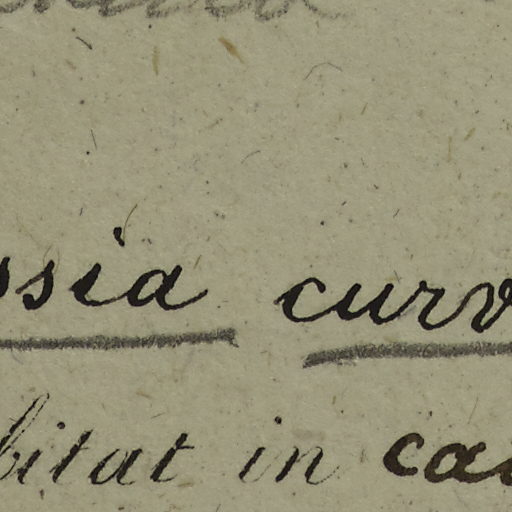 ssia curv
bitat in cas